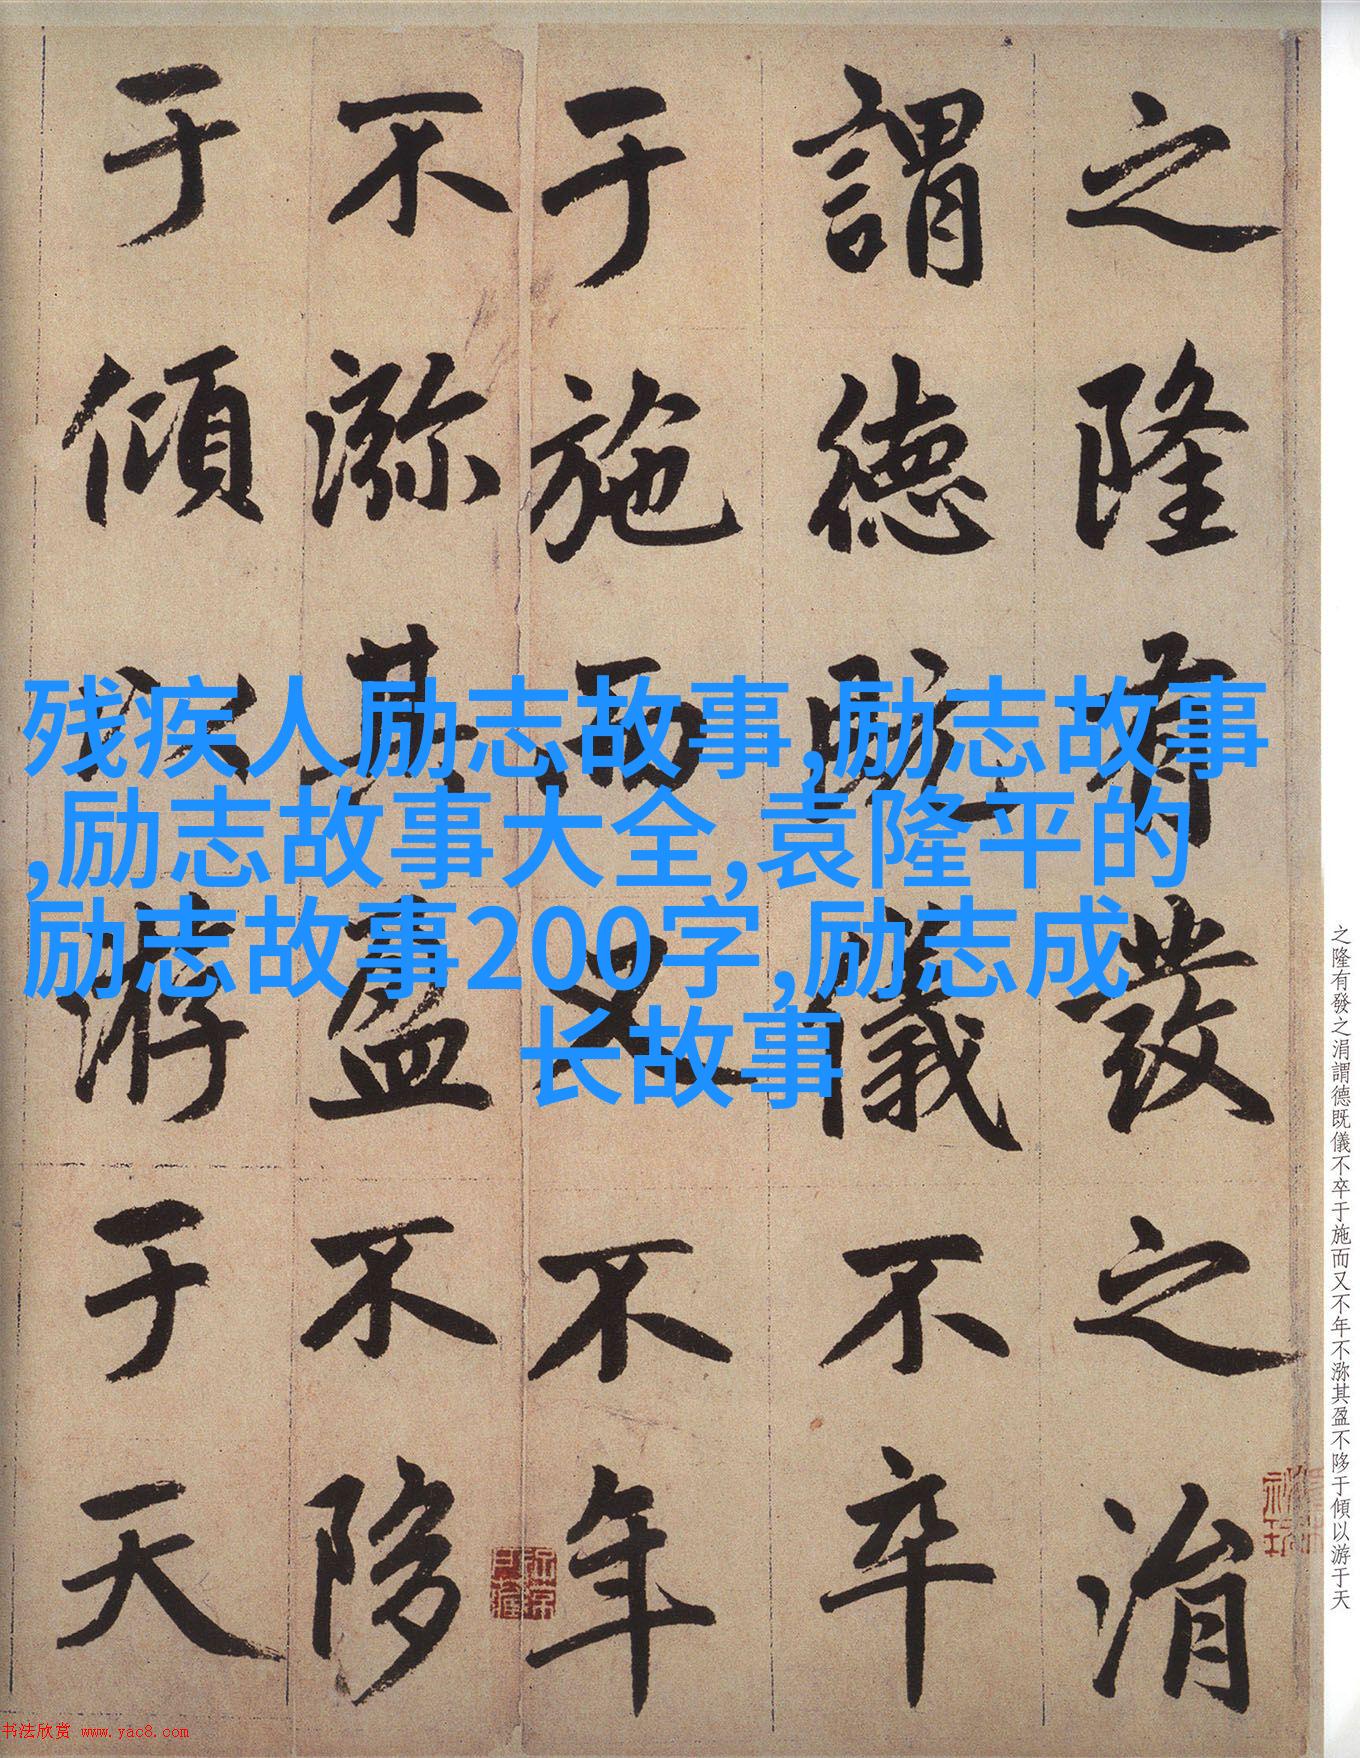 之隆有發之涓
謂德既儀不卒
于施而又不年
不沵其盈不陊
于傾以游于天
残疾人励志故事,励志故事
,励志故事大全,袁隆平的
励志故事200字,励志成
长故事
之隆有發之涓謂德既儀不卒于施而又不年不沵其盈不陊于傾以游于天
书法欣赏 www.yac8.com